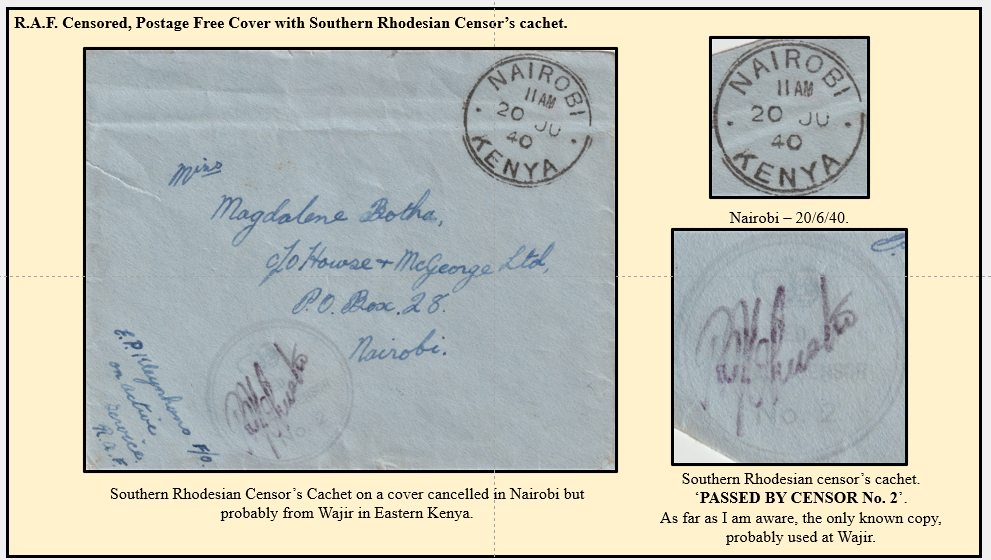 R.A.F. Censored, Postage Free Cover with Southern Rhodesian Censor's cachet.
NAIROBI
11 AM
20 JU
40
KENYA
Miss
Magdalene Botha,
c/o Howse + McGeorge Ltd,
P.O. Box. 28.
Nairobi.
E.P. Kleynhans F/O.
on active
service.
R.A.F.
CENSOR
No. 2
Southern Rhodesian Censor's Cachet on a cover cancelled in Nairobi but
probably from Wajir in Eastern Kenya.
NAIROBI
11 AM
20 JU
40
KENYA
Nairobi – 20/6/40.
CENSOR
No. 2
Southern Rhodesian censor's cachet.
'PASSED BY CENSOR No. 2'.
As far as I am aware, the only known copy,
probably used at Wajir.